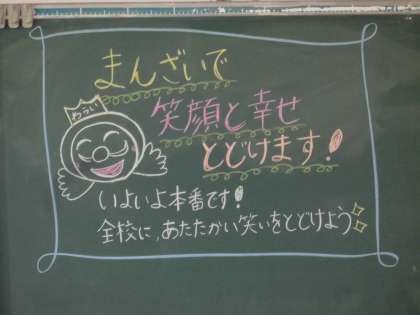 まんざいで
笑顔と幸せ
とどけます!
いよいよ本番です!
全校に、あたたかい笑いをとどけよう